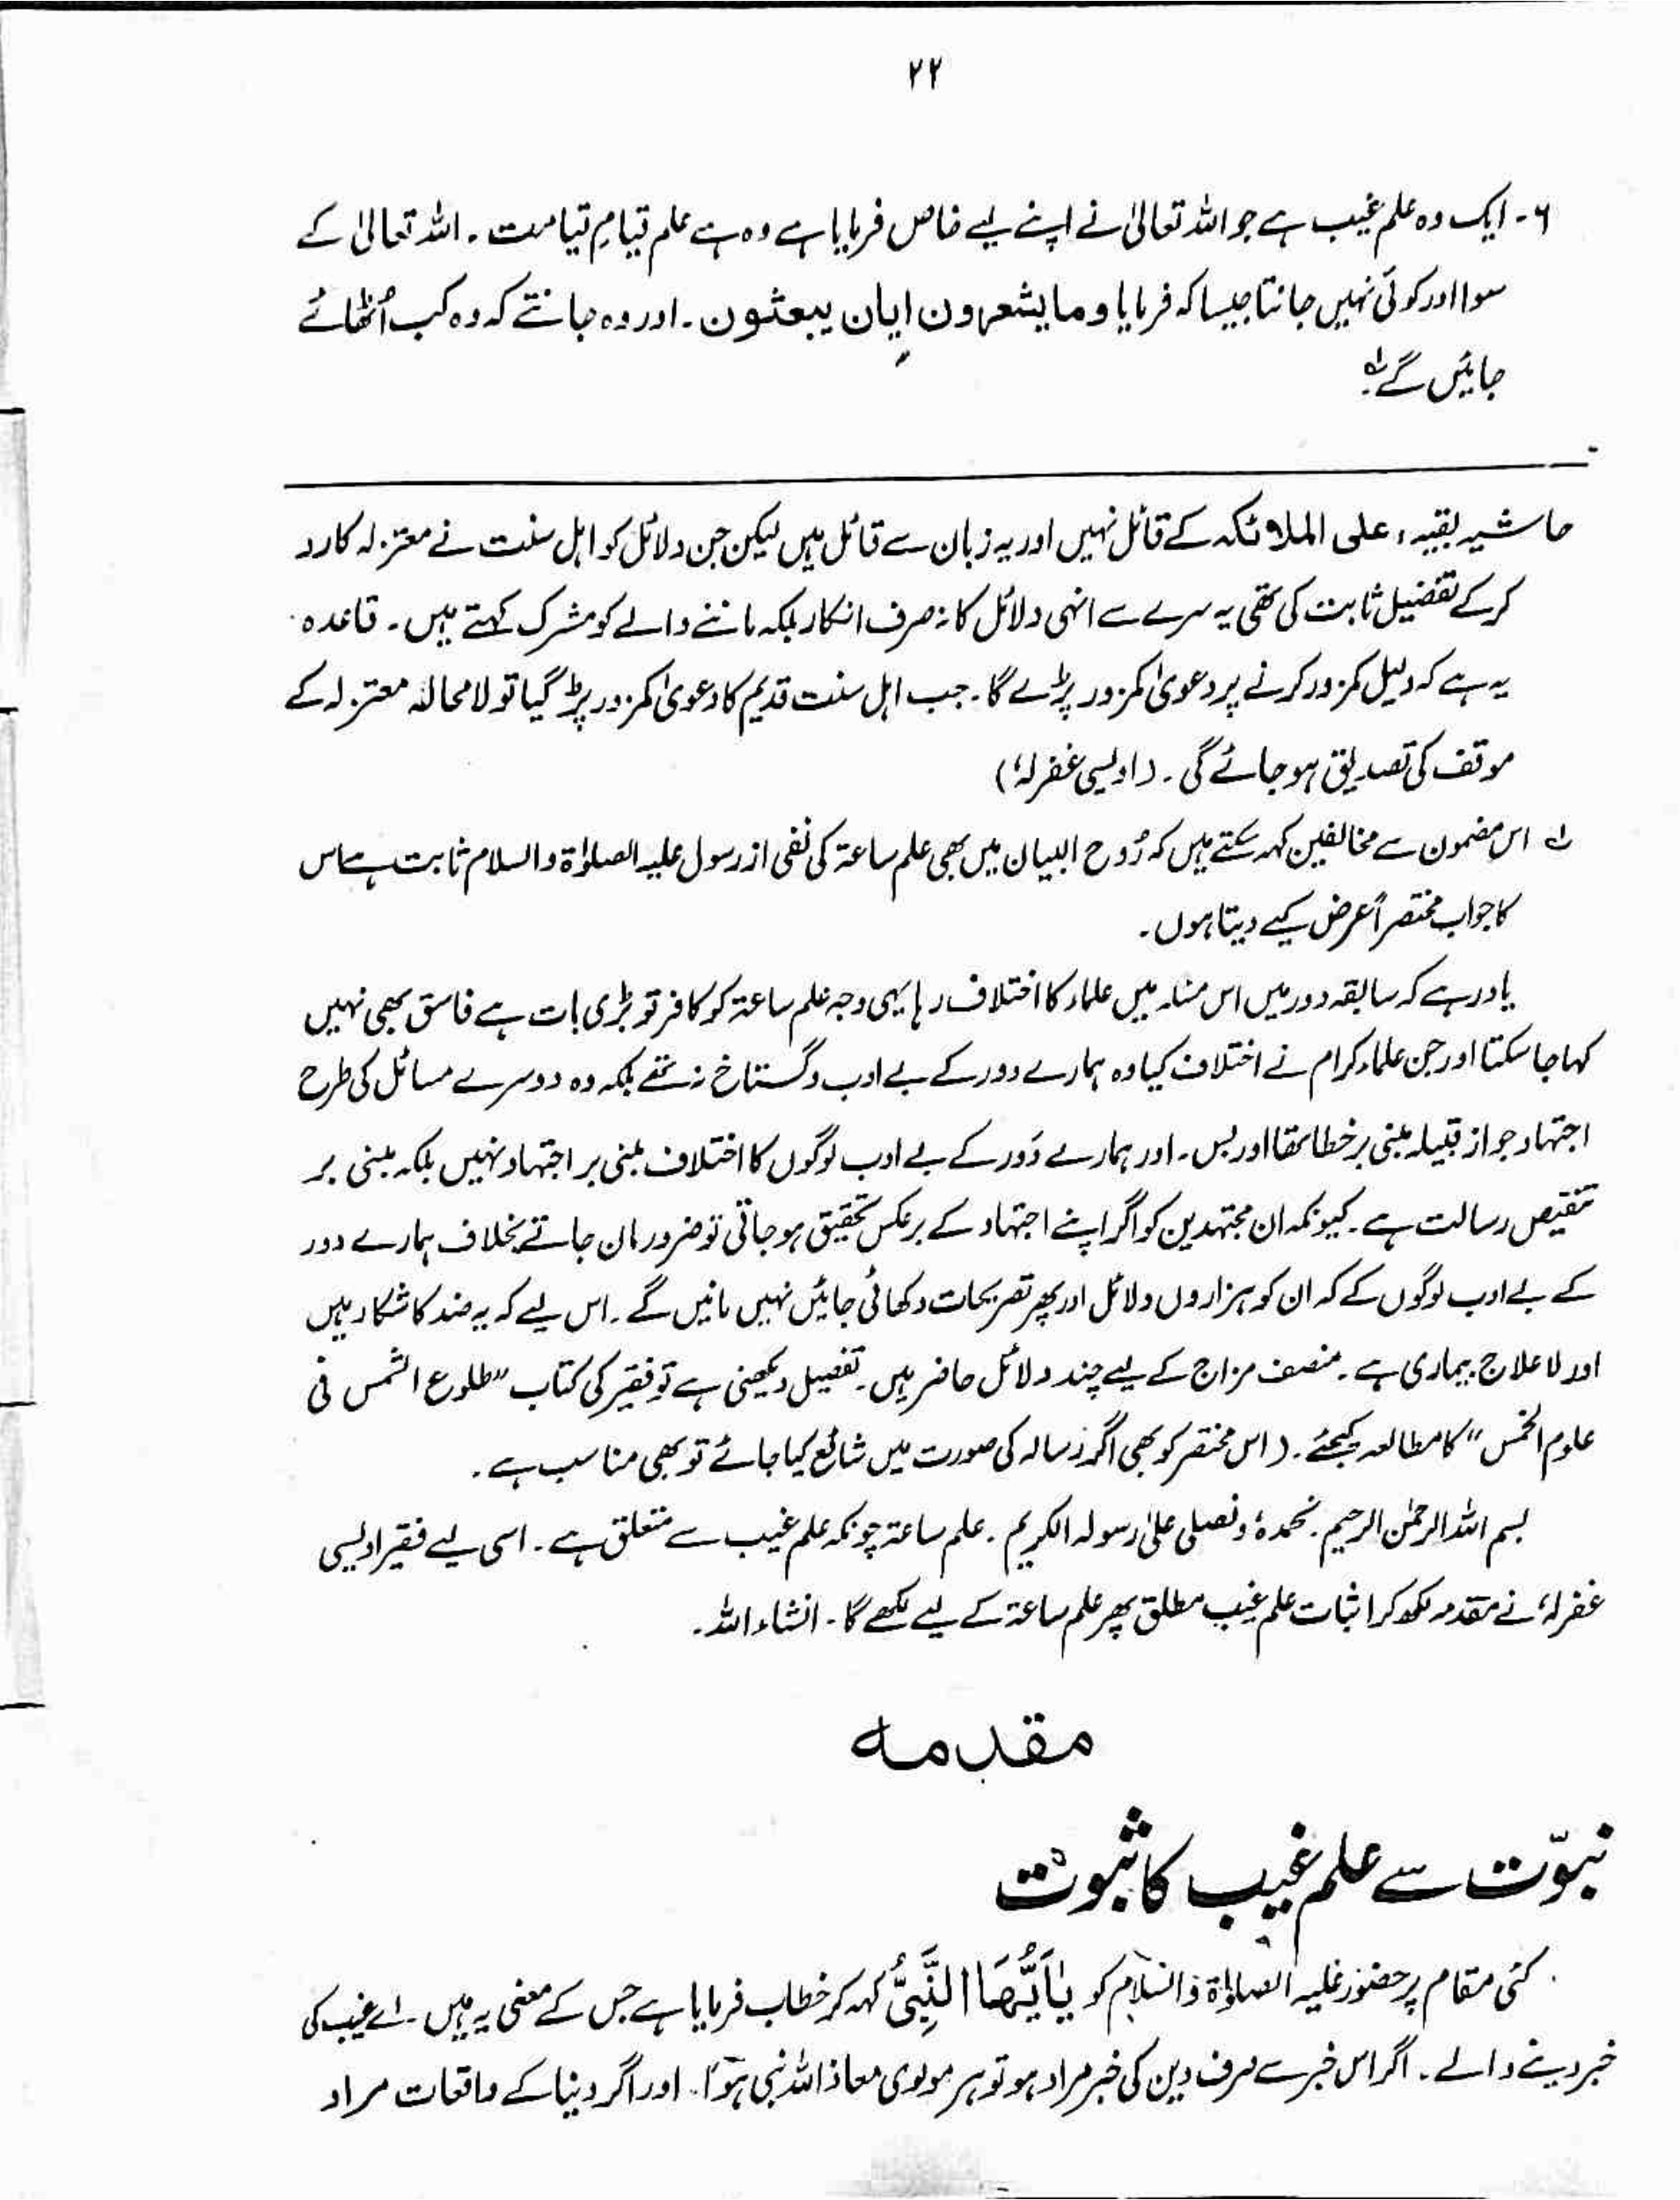 ۲۲
۶۔ ایک وہ علم غیب ہے جو اللہ تعالیٰ نے اپنے لیے خاص فرمایا ہے وہ ہے علم قیامِ قیامت ۔ اللہ تعالیٰ کے
سوا اور کوئی نہیں جانتا جیسا کہ فرمایا وما یشعرون ایان یبعثون ۔ اور وہ جانتے کہ وہ کب اُٹھائے
جائیں گے ؂۱
حاشیہ بقیہ ، علی الملائکہ کے قائل نہیں اور یہ زبان سے قائل ہیں لیکن جن دلائل کو اہل سنت نے معتزلہ کا رد
کر کے تفضیل ثابت کی تھی یہ سرے سے انہی دلائل کا نہ صرف انکار بلکہ ماننے والے کو مشرک کہتے ہیں ۔ قاعدہ
یہ ہے کہ دلیل کمزور کرنے پر دعویٰ کمزور پڑے گا ۔ جب اہل سنت قدیم کا دعویٰ کمزور پڑ گیا تو لامحالہ معتزلہ کے
موقف کی تصدیق ہو جائے گی ۔ (اویسی غفرلہٗ)
؂۱ اس مضمون سے مخالفین کہہ سکتے ہیں کہ رُوح البیان میں بھی علم ساعۃ کی نفی از رسول علیہ الصلوٰۃ والسلام ثابت ہے اس
کا جواب مختصراً عرض کیے دیتا ہوں ۔
یاد رہے کہ سابقہ دور میں اس مسئلہ میں علماء کا اختلاف رہا یہی وجہ علم ساعۃ کو کافر تو بڑی بات ہے فاسق بھی نہیں
کہا جا سکتا اور جن علماء کرام نے اختلاف کیا وہ ہمارے دور کے بے ادب و گستاخ نہ تھے بلکہ وہ دوسرے مسائل کی طرح
اجتہاد جواز قبیلہ مبنی بر خطا تھا اور بس ۔ اور ہمارے دَور کے بے ادب لوگوں کا اختلاف مبنی بر اجتہاد نہیں بلکہ مبنی بر
تنقیص رسالت ہے ۔ کیونکہ ان مجتہدین کو اگر اپنے اجتہاد کے برعکس تحقیق ہو جاتی تو ضرور مان جاتے بخلاف ہمارے دور
کے بے ادب لوگوں کے کہ ان کو ہزاروں دلائل اور پھر تصریحات دکھائی جائیں نہیں مانیں گے ۔ اس لیے کہ یہ ضد کا شکار ہیں
اور لا علاج بیماری ہے ۔ منصف مزاج کے لیے چند دلائل حاضر ہیں ۔ تفصیل دیکھنی ہے تو فقیر کی کتاب ”طلوع الشمس فی
علوم الخمس“ کا مطالعہ کیجئے ۔ (اس مختصر کو بھی اگر رسالہ کی صورت میں شائع کیا جائے تو بھی مناسب ہے ۔
بسم اللہ الرحمٰن الرحیم ۔ نحمدہٗ و نصلی علیٰ رسولہ الکریم ۔ علم ساعۃ چونکہ علم غیب سے متعلق ہے ۔ اسی لیے فقیر اویسی
غفرلہٗ نے مقدمہ لکھ کر اثبات علم غیب مطلق پھر علم ساعۃ کے لیے لکھے گا ۔ انشاء اللہ ۔
مقدمہ
نبوّت سے علم غیب کا ثبوت
کئی مقام پر حضور علیہ الصلوٰۃ والسّلام کو یٰاَیُّهَا النَّبِیُّ کہہ کر خطاب فرمایا ہے جس کے معنی یہ ہیں ۔ اے غیب کی
خبر دینے والے ۔ اگر اس خبر سے صرف دین کی خبر مراد ہو تو ہر مولوی معاذ اللہ نبی ہوا ۔ اور اگر دنیا کے واقعات مراد